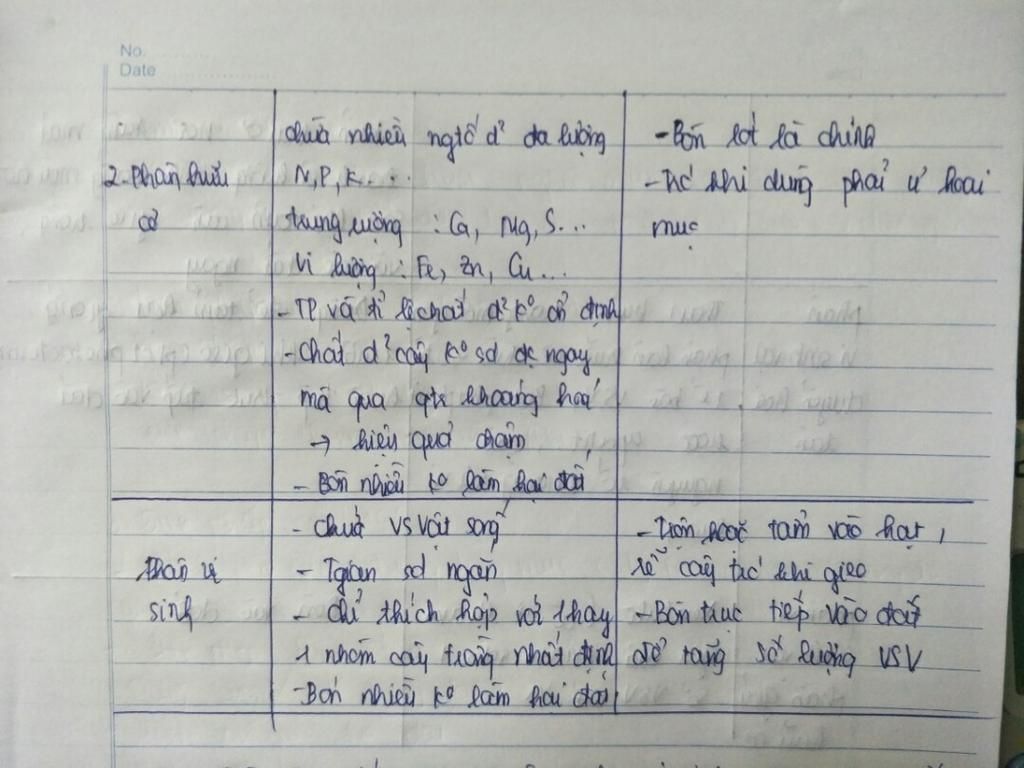 No.
Date
2. Phân hữu
cơ
chứa nhiều ngtố d² đa lượng
N, P, K....
trung lượng : Ca, Mg, S...
Vi lượng : Fe, Zn, Cu...
- TP và tỉ lệ chất d² k° ổn định
- Chất d² cây k° sd đc ngay
mà qua qtr khoáng hoá
→ hiệu quả chậm
- Bón nhiều k° làm hại đất
- Bón lót là chính
- trc khi dùng phải ủ hoai
mục
Phân vi
sinh
- Chứa VS vật sống
- Tgian sd ngắn
- chỉ thích hợp với 1 hay
1 nhóm cây trồng nhất định
- Bón nhiều k° làm hại đất
- Trộn hoặc tẩm vào hạt,
rễ cây trc khi gieo
- Bón trực tiếp vào đất
để tăng số lượng VSV